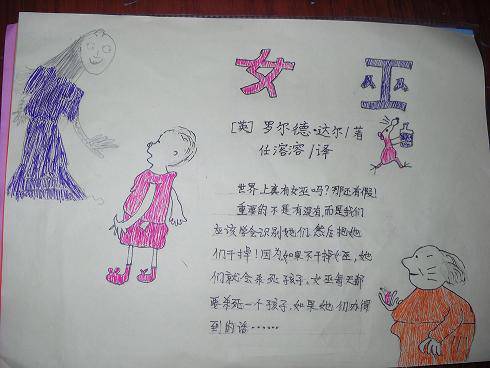 女巫
[英]罗尔德·达尔/著
任溶溶/译
世界上真有女巫吗?那还有假!
重要的不是有没有,而是我们
应该学会识别她们,然后把她
们干掉!因为如果不干掉女巫,她
们就会杀死孩子。女巫每天都
要杀死一个孩子,如果她们办得
到的话……